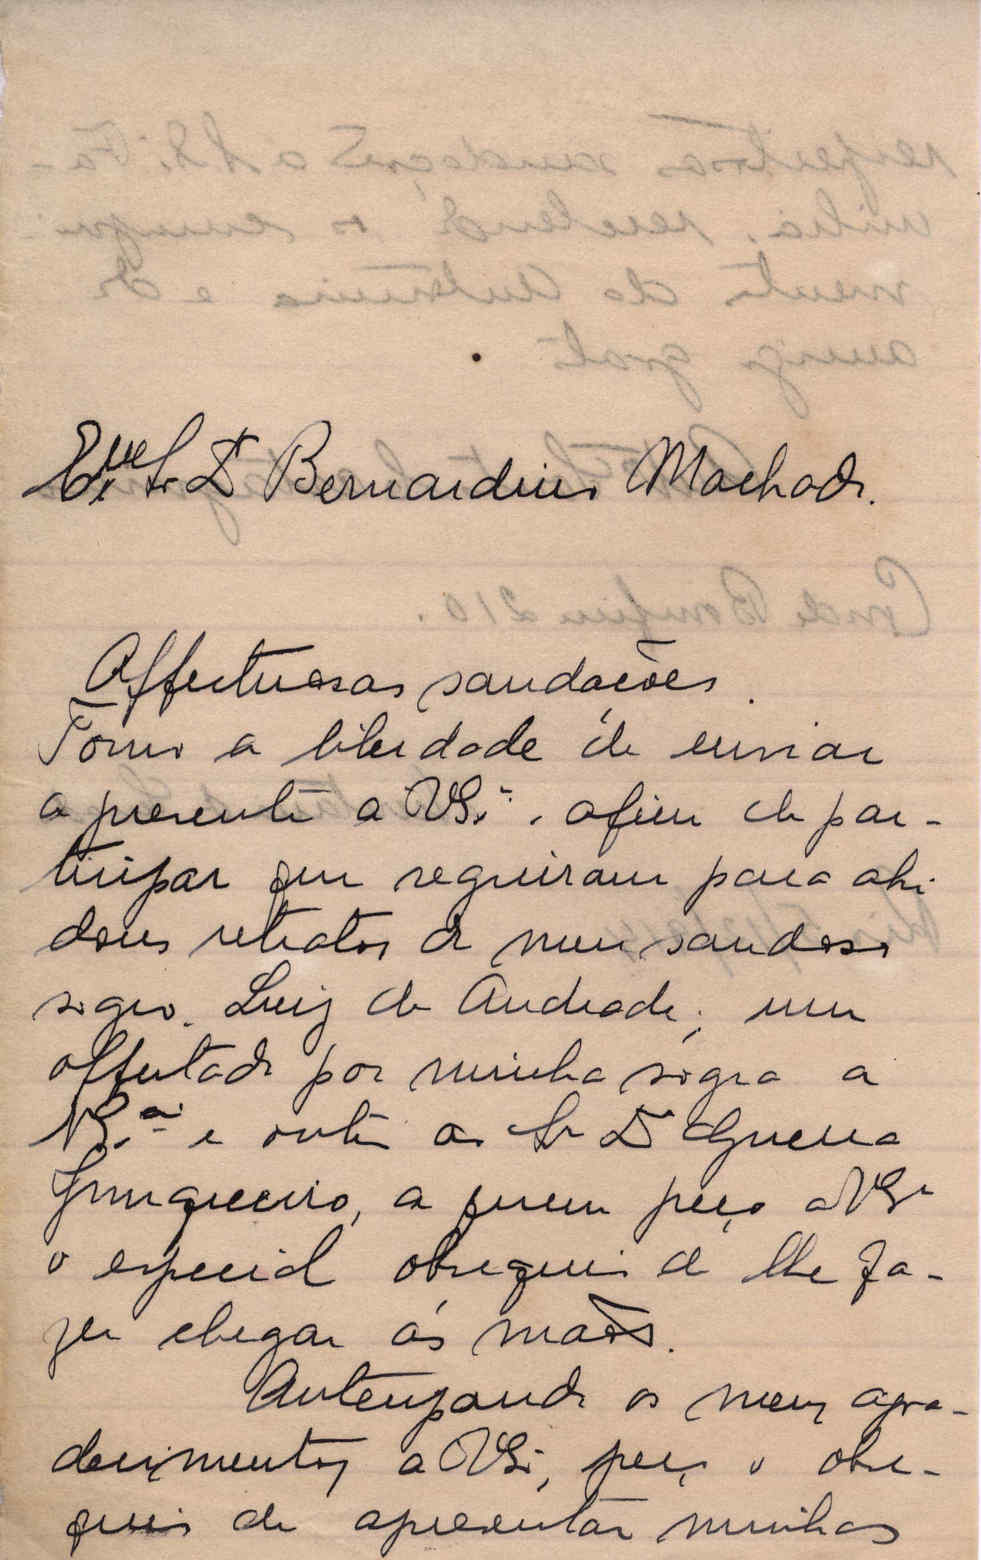 Exmº Sr Dr Bernardino Machado.
Affectuosas saudações.
Tomo a liberdade de enviar
a presente a VSia, afim de par-
ticipar que seguiram para ahi
dous retratos de meu saudoso
sogro. Luiz de Andrade; um
offertado por minha sogra a
VSia e outro ao Sr Dr Guerra
Junqueiro, a quem peço a VSia
o especial obsequio de lhe fa-
zer chegar ás mãos.
Antecipando os meus agra-
decimentos a VSia, peço o obse-
quio de apresentar minhas